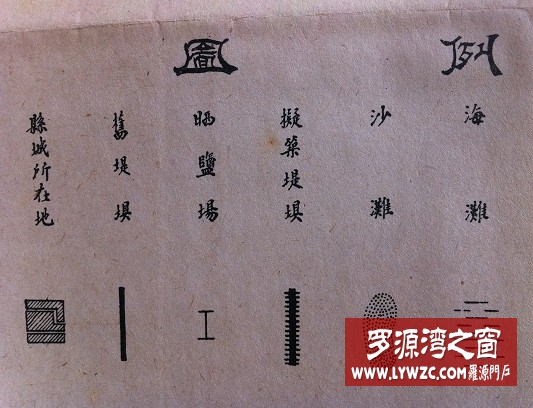 圖例
海灘
沙灘
擬築堤垻
晒鹽場
舊堤垻
縣城所在地
罗源湾之窗
WWW.LYWZC.COM 羅源門戶